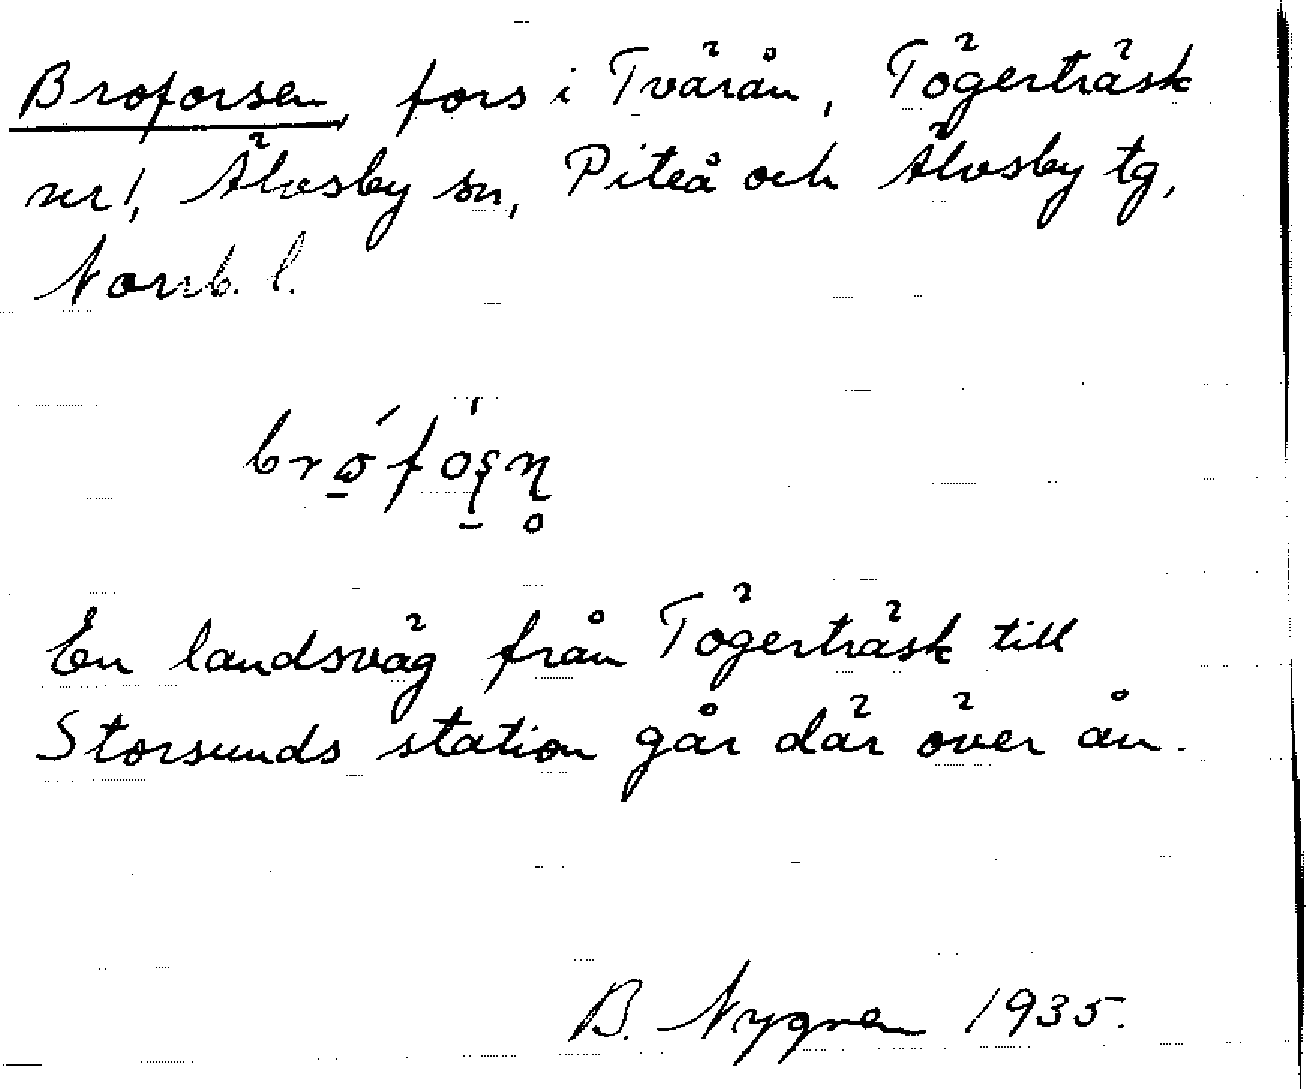 Broforsen, fors i Tvärån, Tögerträsk
nr 1, Älvsby sn, Piteå och Älvsby tg,
Norrb. l.
En landsväg från Tögerträsk till
Storsunds station går där över ån.
B. Nygren 1935.